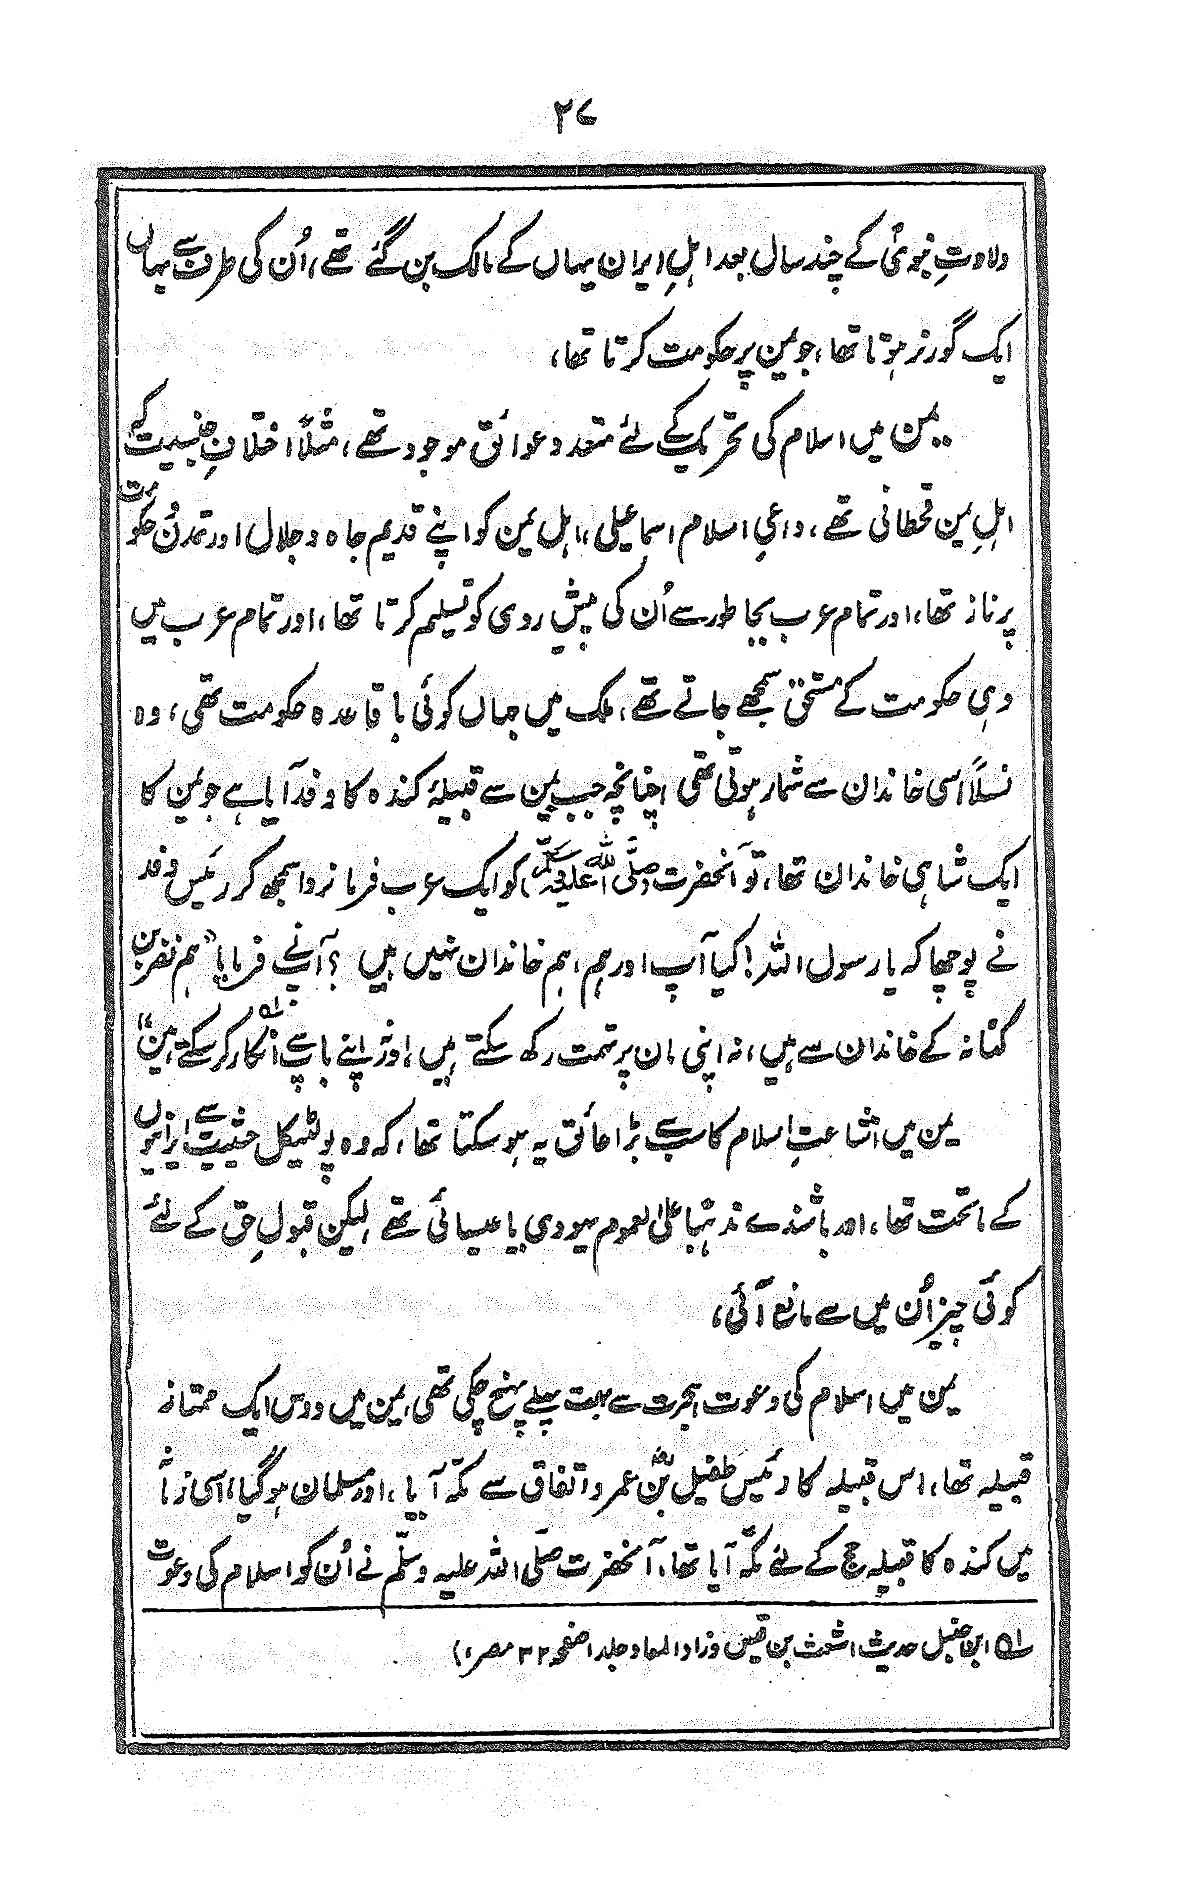 ۲۷
ولادتِ نبویؐ کے چند سال بعد اہلِ ایران یہاں کے مالک بن گئے تھے، اُن کی طرف سے یہاں
ایک گورنر ہوتا تھا، جو یمن پر حکومت کرتا تھا،
یمن میں اسلام کی تحریک کے لئے متعدد عوائق موجود تھے، مثلاً اختلافِ جنسیت کہ
اہلِ یمن قحطانی تھے، داعیِ اسلام اسماعیلی، اہل یمن کو اپنے قدیم جاہ و جلال اور تمدن و حکومت
پر ناز تھا، اور تمام عرب بجا طور سے اُن کی پیش روی کو تسلیم کرتا تھا، اور تمام عرب میں
وہی حکومت کے مستحق سمجھے جاتے تھے، ملک میں جہاں کوئی باقاعدہ حکومت تھی، وہ
نسلاً اسی خاندان سے شمار ہوتی تھی، چنانچہ جب یمن سے قبیلۂ کندہ کا وفد آیا ہے جو یمن کا
ایک شاہی خاندان تھا، تو آنحضرت (صلّی اللہ علیہ وسلم) کو ایک عرب فرمانروا سمجھ کر رئیس وفد
نے پوچھا کہ یا رسول اللہ! کیا آپ اور ہم، ہم خاندان نہیں ہیں؟ آپ نے فرمایا "ہم نضر بن
کنانہ کے خاندان سے ہیں، نہ اپنی ماں پر تہمت رکھ سکتے ہیں، اور نہ اپنے باپ سے انکار کر سکتے ہیں"
یمن میں اشاعتِ اسلام کا سب سے بڑا عائق یہ ہو سکتا تھا، کہ وہ پولٹیکل حیثیت سے ایرانیوں
کے ماتحت تھا، اور باشندے مذہباً علی العموم یہودی یا عیسائی تھے، لیکن قبولِ حق کے لئے
کوئی چیز اُن میں سے مانع نہ آئی،
یمن میں اسلام کی دعوت ہجرت سے بہت پہلے پہنچ چکی تھی، یمن میں دوس ایک ممتاز
قبیلہ تھا، اس قبیلہ کا رئیس طفیلؓ بن عمرو اتفاق سے مکہ آیا، اور مسلمان ہو گیا، اسی زمانہ
میں کندہ کا قبیلہ حج کے لئے مکہ آیا تھا، آنحضرت صلّی اللہ علیہ وسلّم نے اُن کو اسلام کی دعوت
لہ ابن حنبل حدیث اشعث بن قیس و زاد المعاد جلد ا صفحہ ۳۲ مصر،)